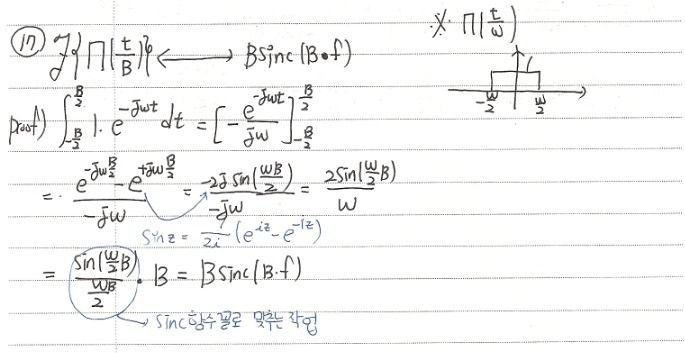 (17) ℱ{Π(t/B)} ⟷ B sinc(B•f)
※ Π(t/w)
1
-w/2 w/2
proof) ∫_{-B/2}^{B/2} 1· e^{-jwt} dt = [- e^{-jwt}/jw]_{-B/2}^{B/2}
= (e^{-jw B/2} - e^{+jw B/2})/(-jw) = (-2j sin(wB/2))/(-jw) = (2sin(w/2 B))/w
sin z = 1/2i (e^{iz} - e^{-iz})
= (sin(w/2 B))/(wB/2) · B = B sinc(B·f)
sinc함수꼴로 맞추는 작업